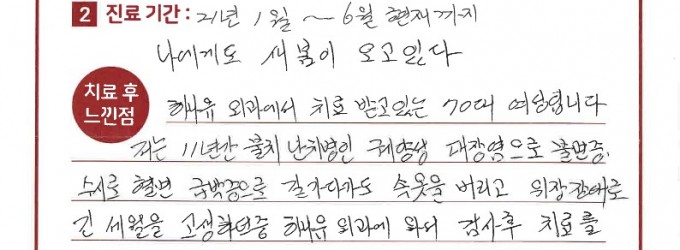 2 진료 기간 : 21년 1월 ~ 6월 현재까지
나에게도 새봄이 오고있다
치료 후
느낀점
하나유 외과에서 치료 받고있는 70대 여성입니다
저는 11년간 불치 난치병인 궤양성 대장염으로 불면증,
수시로 혈변 급박증으로 길가다가도 속옷을 버리고 위장장애로
긴 세월을 고생하던중 하나유 외과에 와서 검사후 치료를